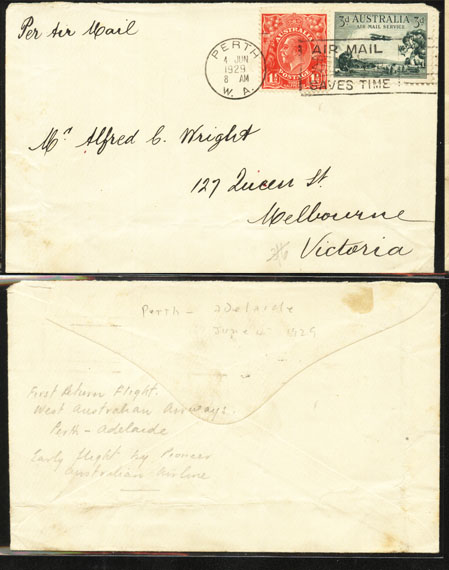 Per Air Mail
PERTH
4 JUN
1929
8 AM
W. A.
AUSTRALIA
1½ 1½
POSTAGE
3d AUSTRALIA 3d
AIR MAIL SERVICE
AIR MAIL
SAVES TIME
Mr Alfred C. Wright
127 Queen St.
Melbourne
Victoria
Perth - Adelaide
June 4 1929
First Return Flight.
West Australian Airways.
Perth - Adelaide
Early flight by Pioneer
Australian Airline